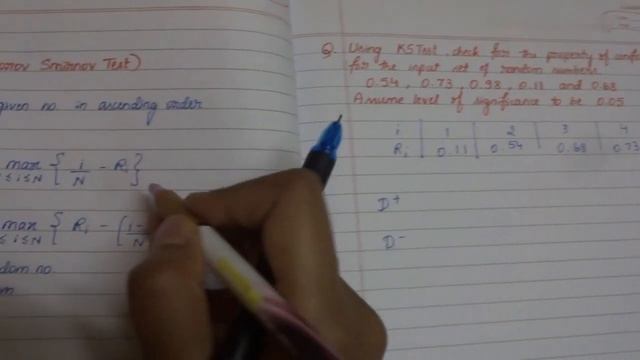 Smirnov Test)
given no. in ascending order
max { i/N - Ri }
1≤i≤N
max { Ri - (
≤i≤N
no.
Q. Using KS Test, check for the property of
for the input set of random numbers
0.54, 0.73, 0.98, 0.11 and 0.68
Assume level of significance to be 0.05
i 1 2 3 4
Ri 0.11 0.54 0.68 0.73
D+
D-